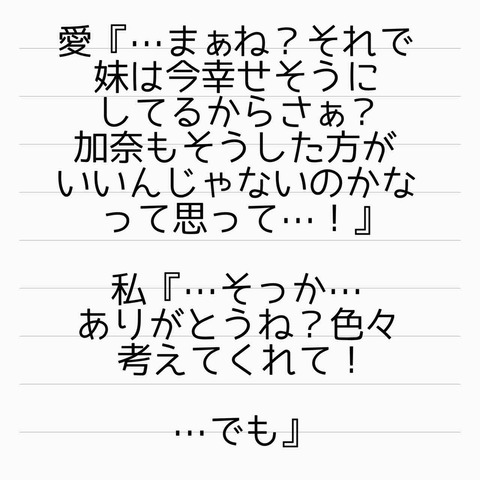 愛『…まぁね？それで
妹は今幸せそうに
してるからさぁ？
加奈もそうした方が
いいんじゃないのかな
って思って…！』
私『…そっか…
ありがとうね？色々
考えてくれて！
…でも』